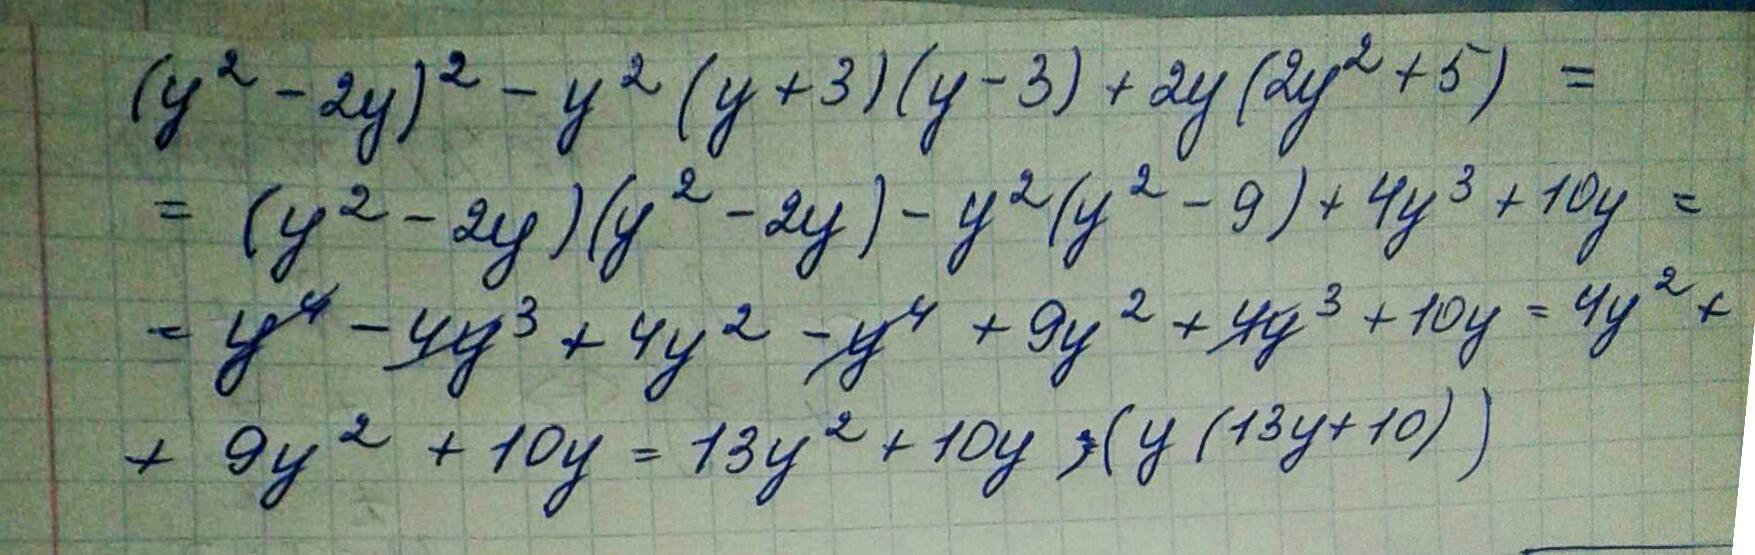 (y² - 2y)² - y² (y + 3)(y - 3) + 2y (2y² + 5) =
= (y² - 2y)(y² - 2y) - y² (y² - 9) + 4y³ + 10y =
= y⁴ - 4y³ + 4y² - y⁴ + 9y² + 4y³ + 10y = 4y² +
+ 9y² + 10y = 13y² + 10y ; (y (13y + 10))